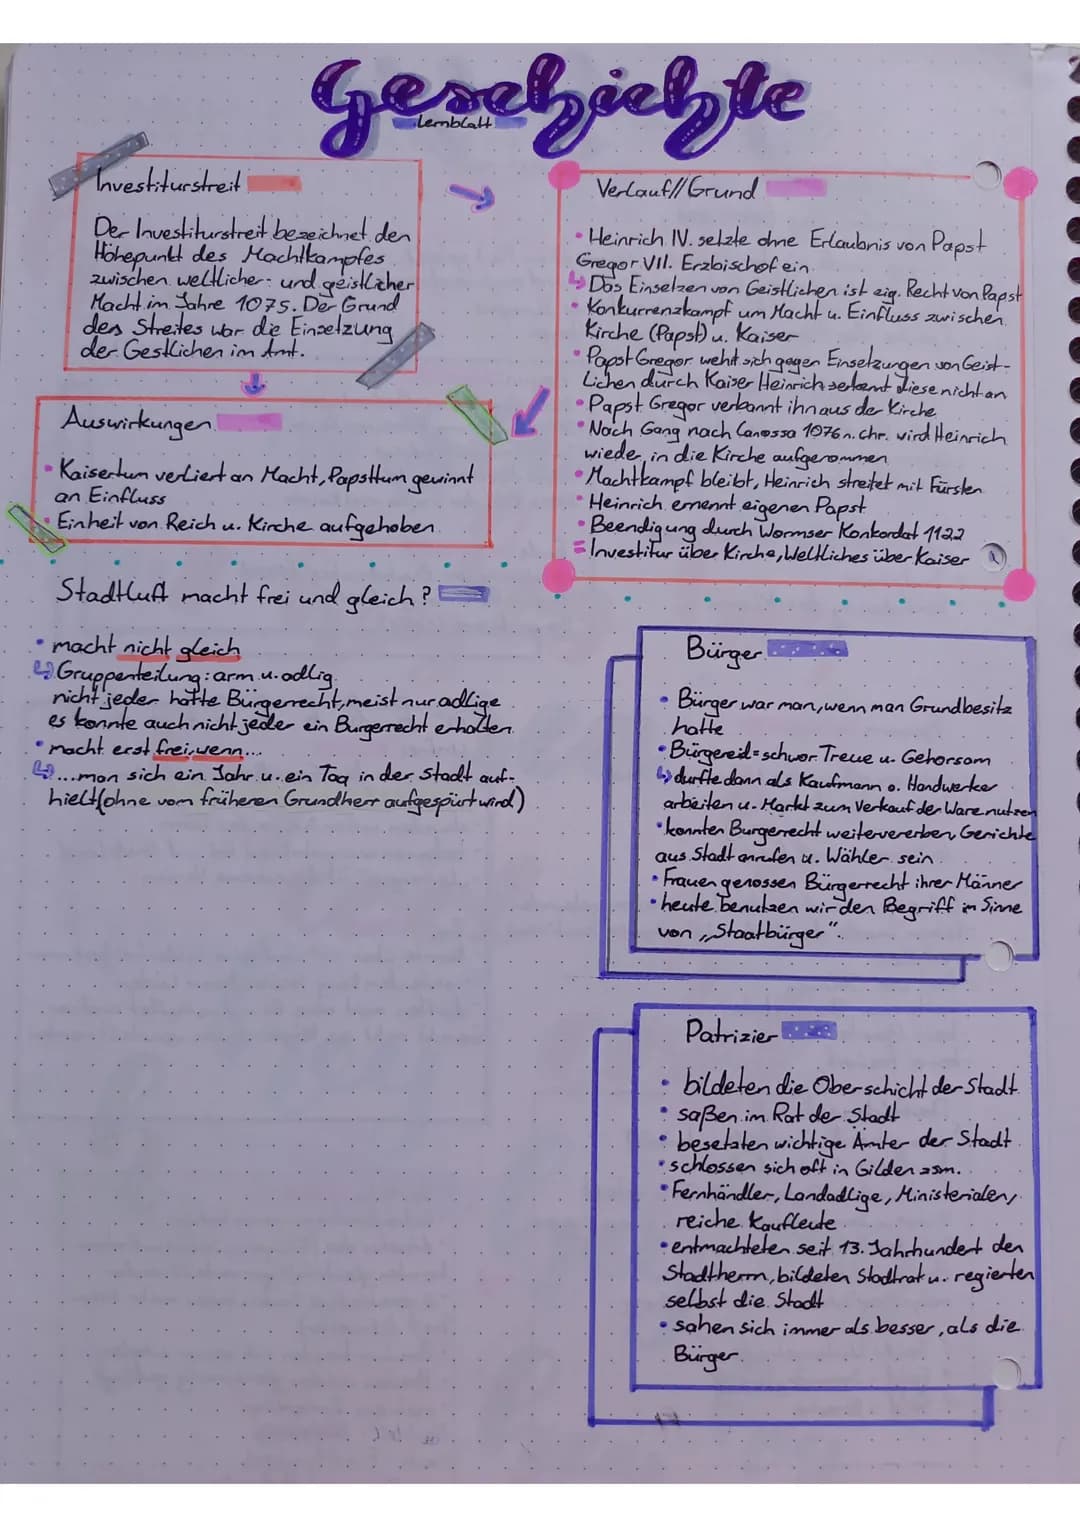 Geschichte
Lernblatt
Investiturstreit
Der Investiturstreit bezeichnet den
Höhepunkt des Machtkampfes
zwischen weltlicher- und geistlicher
Macht im Jahre 1075. Der Grund
des Streites war die Einsetzung
der Gestlichen im Amt.
Verlauf//Grund
• Heinrich IV. setzte ohne Erlaubnis von Papst
Gregor VII. Erzbischof ein
↳ Das Einsetzen von Geistlichen ist eig. Recht von Papst
• Konkurrenzkampf um Macht u. Einfluss zwischen
Kirche (Papst) u. Kaiser
• Papst Gregor wehrt sich gegen Einsetzungen von Geist-
lichen durch Kaiser Heinrich, erkennt diese nicht an
• Papst Gregor verbannt ihn aus der Kirche
• Nach Gang nach Canossa 1076 n. Chr. wird Heinrich
wieder in die Kirche aufgenommen
• Machtkampf bleibt, Heinrich streitet mit Fürsten
• Heinrich ernennt eigenen Papst
• Beendigung durch Wormser Konkordat 1122
= Investitur über Kirche, Weltliches über Kaiser
Auswirkungen
• Kaisertum verliert an Macht, Papsttum gewinnt
an Einfluss
• Einheit von Reich u. Kirche aufgehoben
Stadtluft macht frei und gleich?
• macht nicht gleich
↳ Gruppenteilung: arm u. adlig
nicht jeder hatte Bürgerrecht, meist nur adlige
es konnte auch nicht jeder ein Burgerrecht erhalten
• macht erst frei, wenn...
↳ ...man sich ein Jahr u. ein Tag in der Stadt auf-
hielt (ohne vom früheren Grundherr aufgespürt wird)
Bürger
• Bürger war man, wenn man Grundbesitz
hatte
• Bürgereid = schwor Treue u. Gehorsam
↳ durfte dann als Kaufmann o. Handwerker
arbeiten u. Markt zum Verkauf der Ware nutzen
• konnten Burgerrecht weitervererben, Gerichte
aus Stadt anrufen u. Wähler sein
• Frauen genossen Bürgerrecht ihrer Männer
• heute benutzen wir den Begriff im Sinne
von „Staatbürger".
Patrizier
• bildeten die Oberschicht der Stadt
• saßen im Rat der Stadt
• besetzten wichtige Ämter der Stadt
• schlossen sich oft in Gilden zsm.
• Fernhändler, Landadlige, Ministerialen,
reiche Kaufleute
• entmachteten seit 13. Jahrhundert den
Stadtherrn, bildeten Stadtrat u. regierten
selbst die Stadt
• sahen sich immer als besser, als die
Bürger